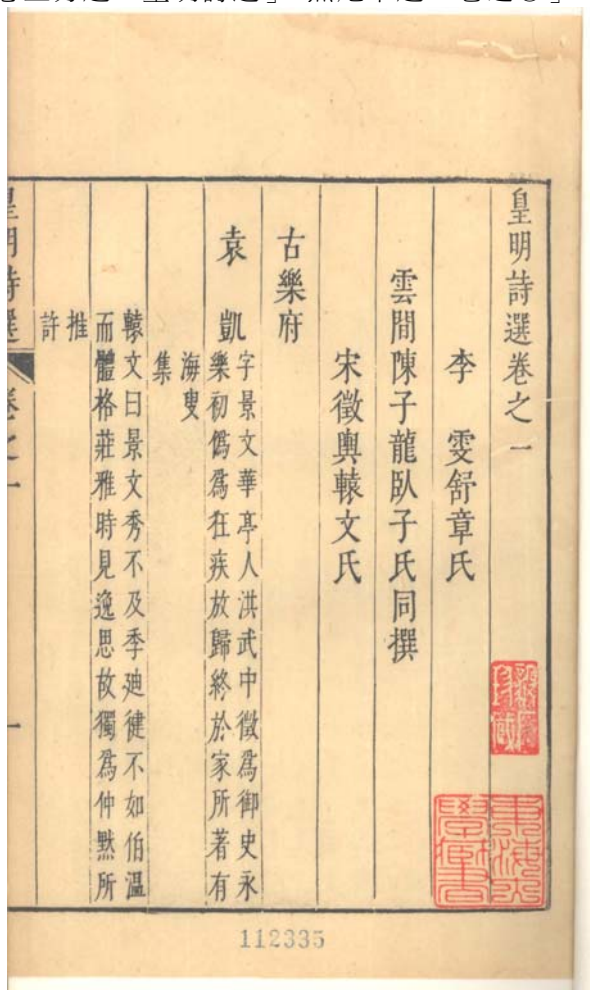 皇明詩選卷之一
李　雯舒章氏
雲間陳子龍臥子氏同撰
宋徵輿轅文氏
古樂府
袁　凱
字景文華亭人洪武中徵爲御史永
樂初僞爲狂疾放歸終於家所著有
海叟
集
轅文曰景文秀不及季迪健不如伯溫
而體格莊雅時見逸思故獨爲仲默所
推
許
皇明詩選　卷之一　一
112335